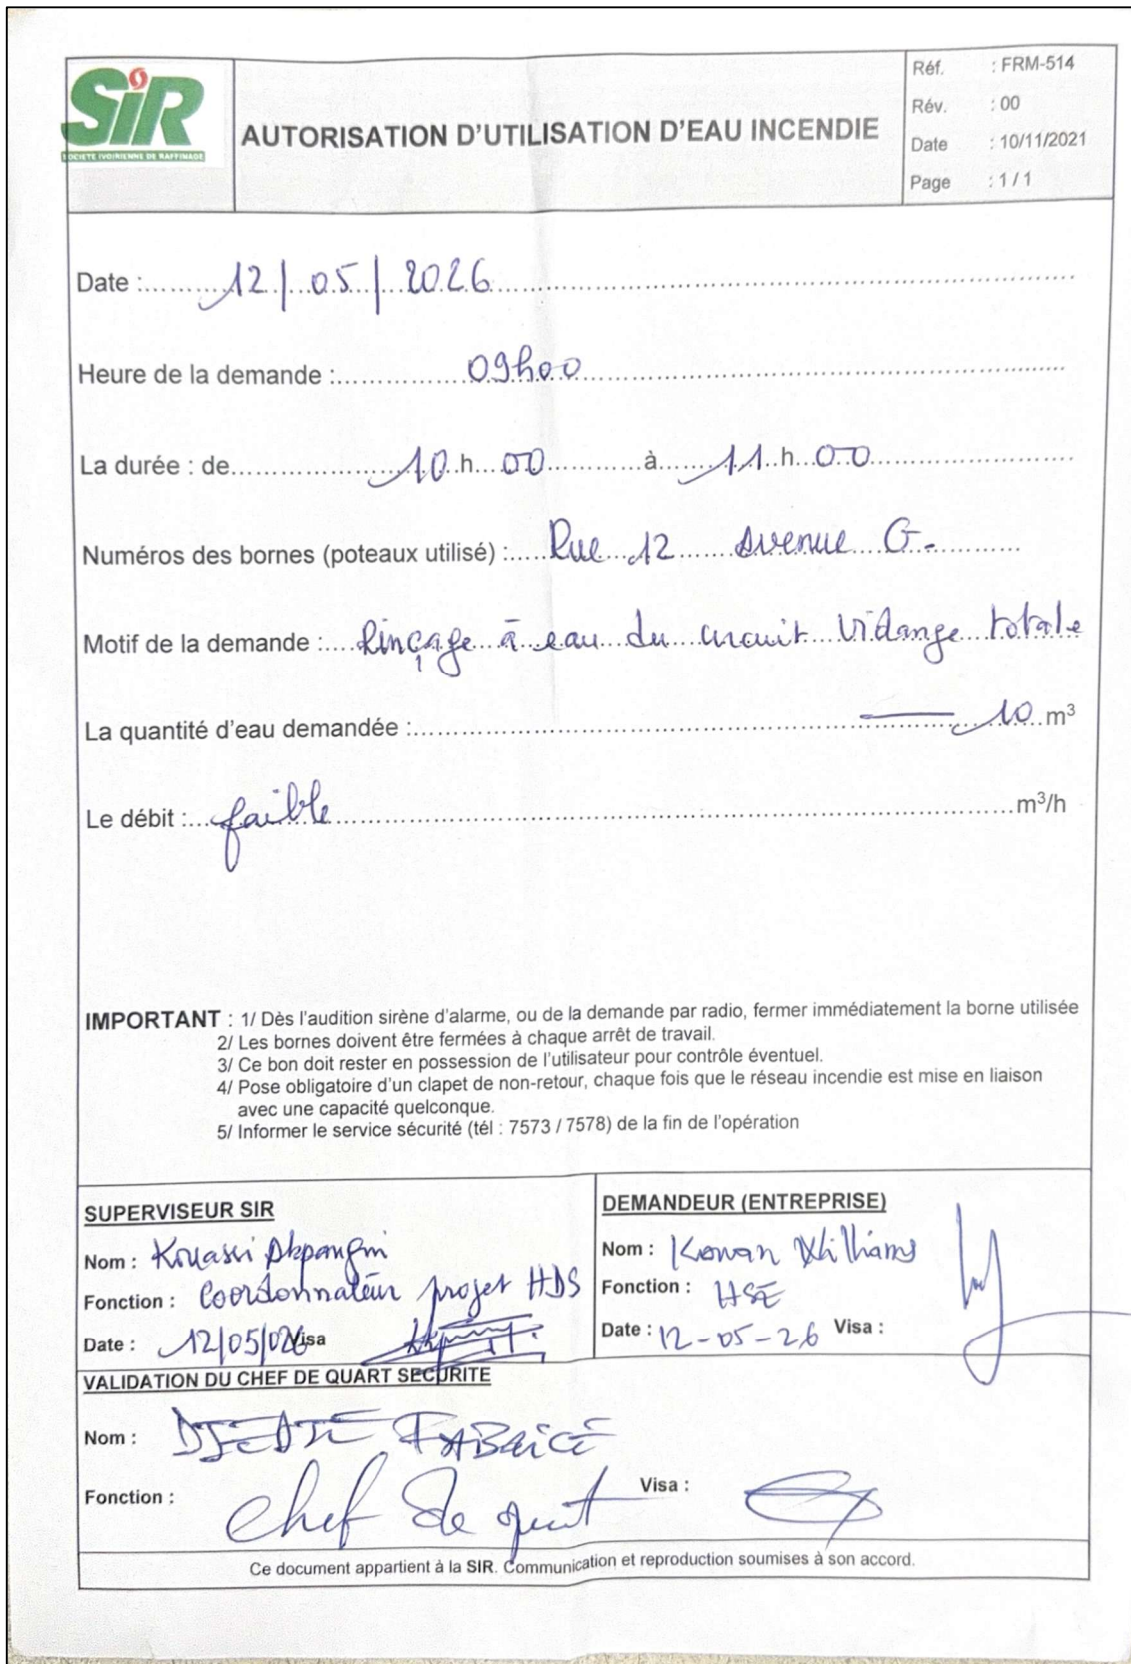 SiR
SOCIETE IVOIRIENNE DE RAFFINAGE
AUTORISATION D'UTILISATION D'EAU INCENDIE
Réf. : FRM-514
Rév. : 00
Date : 10/11/2021
Page : 1 / 1
Date :........12/05/2026........
Heure de la demande :........09h00........
La durée : de........10.h...00........à.....11..h..00........
Numéros des bornes (poteaux utilisé) :.....Rue 12 avenue G.
Motif de la demande :....Rinçage à eau du circuit vidange totale
La quantité d'eau demandée :........— 10 m³
Le débit :...faible........m³/h
IMPORTANT : 1/ Dès l'audition sirène d'alarme, ou de la demande par radio, fermer immédiatement la borne utilisée
2/ Les bornes doivent être fermées à chaque arrêt de travail.
3/ Ce bon doit rester en possession de l'utilisateur pour contrôle éventuel.
4/ Pose obligatoire d'un clapet de non-retour, chaque fois que le réseau incendie est mise en liaison
avec une capacité quelconque.
5/ Informer le service sécurité (tél : 7573 / 7578) de la fin de l'opération
SUPERVISEUR SIR
Nom : Kouassi
Fonction : Coordonnateur projet HDS
Date : 12/05/026 Visa
DEMANDEUR (ENTREPRISE)
Nom : Williams
Fonction : HSE
Date : 12-05-26 Visa :
VALIDATION DU CHEF DE QUART SECURITE
Nom : FABRICE
Fonction : Chef de quart Visa :
Ce document appartient à la SIR. Communication et reproduction soumises à son accord.